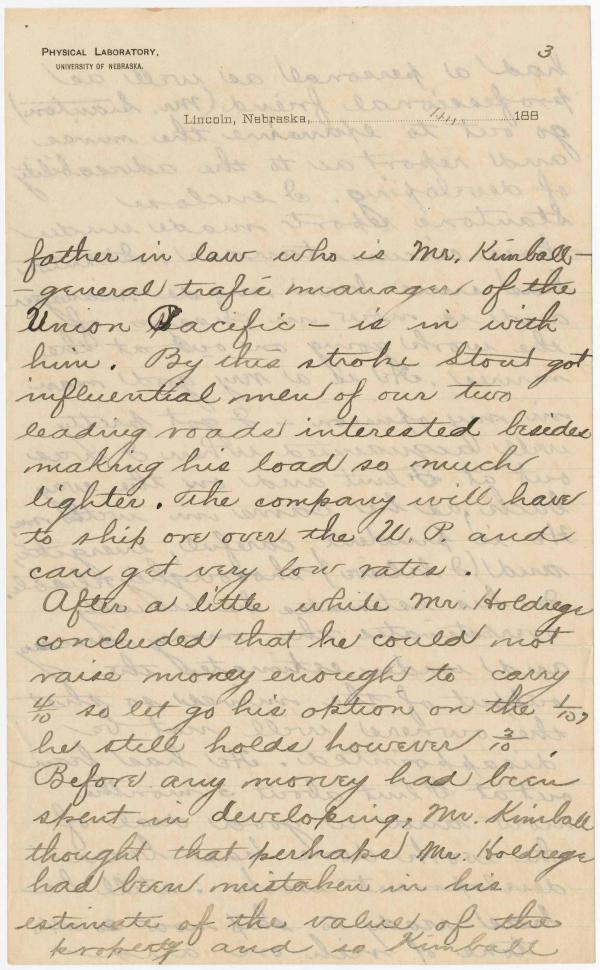 PHYSICAL LABORATORY,
UNIVERSITY OF NEBRASKA.
3
Lincoln, Nebraska, 188
father in law who is Mr. Kimball –
– general trafic manager of the
Union Pacific – is in with
him. By this stroke Stout got
influential men of our two
leading roads interested besides
making his load so much
lighter. The company will have
to ship ore over the U. P. and
can get very low rates.
After a little while Mr. Holdrege
concluded that he could not
raise money enough to carry
4/10 so let go his option on the 1/10,
he still holds however 3/10.
Before any money had been
spent in developing, Mr. Kimball
thought that perhaps Mr. Holdrege
had been mistaken in his
estimate of the value of the
property and so Kimball